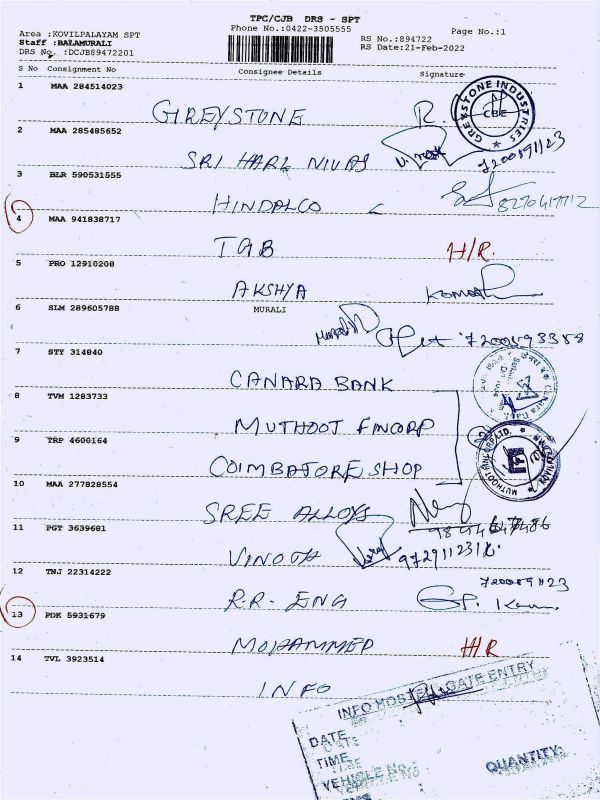 TPC/CJB DRS - SPT
Area :KOVILPALAYAM SPT Phone No.:0422-3505555 Page No.:1
Staff :BALAMURALI RS No.:894722
DRS No. :DCJB89472201 RS Date:21-Feb-2022
S No Consignment No Consignee Details Signature
1 MAA 284514023
GREYSTONE R. GREYSTONE INDUSTRIES CBE
2 MAA 285485652
SRI HARI NIVAS
3 BLR 590531555
HINDALCO 8270417712
4 MAA 941838717
TAB H/R.
5 PRO 12910208
AKSHYA
6 SLM 289605788 MURALI
7 STY 314840
CANARA BANK
8 TVM 1283733
MUTHOOT FINCORP
9 TRP 4600164
COIMBATORE SHOP MUTHOOT FINCORP LTD.
10 MAA 277828554
SREE ALLOYS
11 PGT 3639681
VINOTH
12 TNJ 22314222
R.R. ENG
13 PDK 5931679
MOHAMMED H/R
14 TVL 3923514
INFO
GATE ENTRY
DATE
TIME
VEHICLE No. QUANTITY